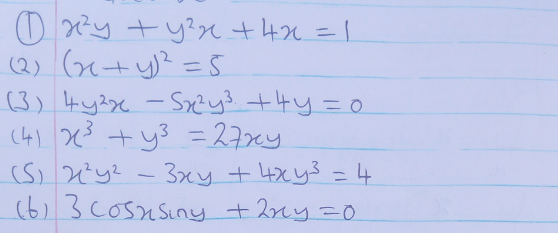 ① x²y + y²x + 4x = 1
(2) (x + y)² = 5
(3) 4y²x - 5x²y³ + 4y = 0
(4) x³ + y³ = 27xy
(5) x²y² - 3xy + 4xy³ = 4
(6) 3 cosx siny + 2xy = 0